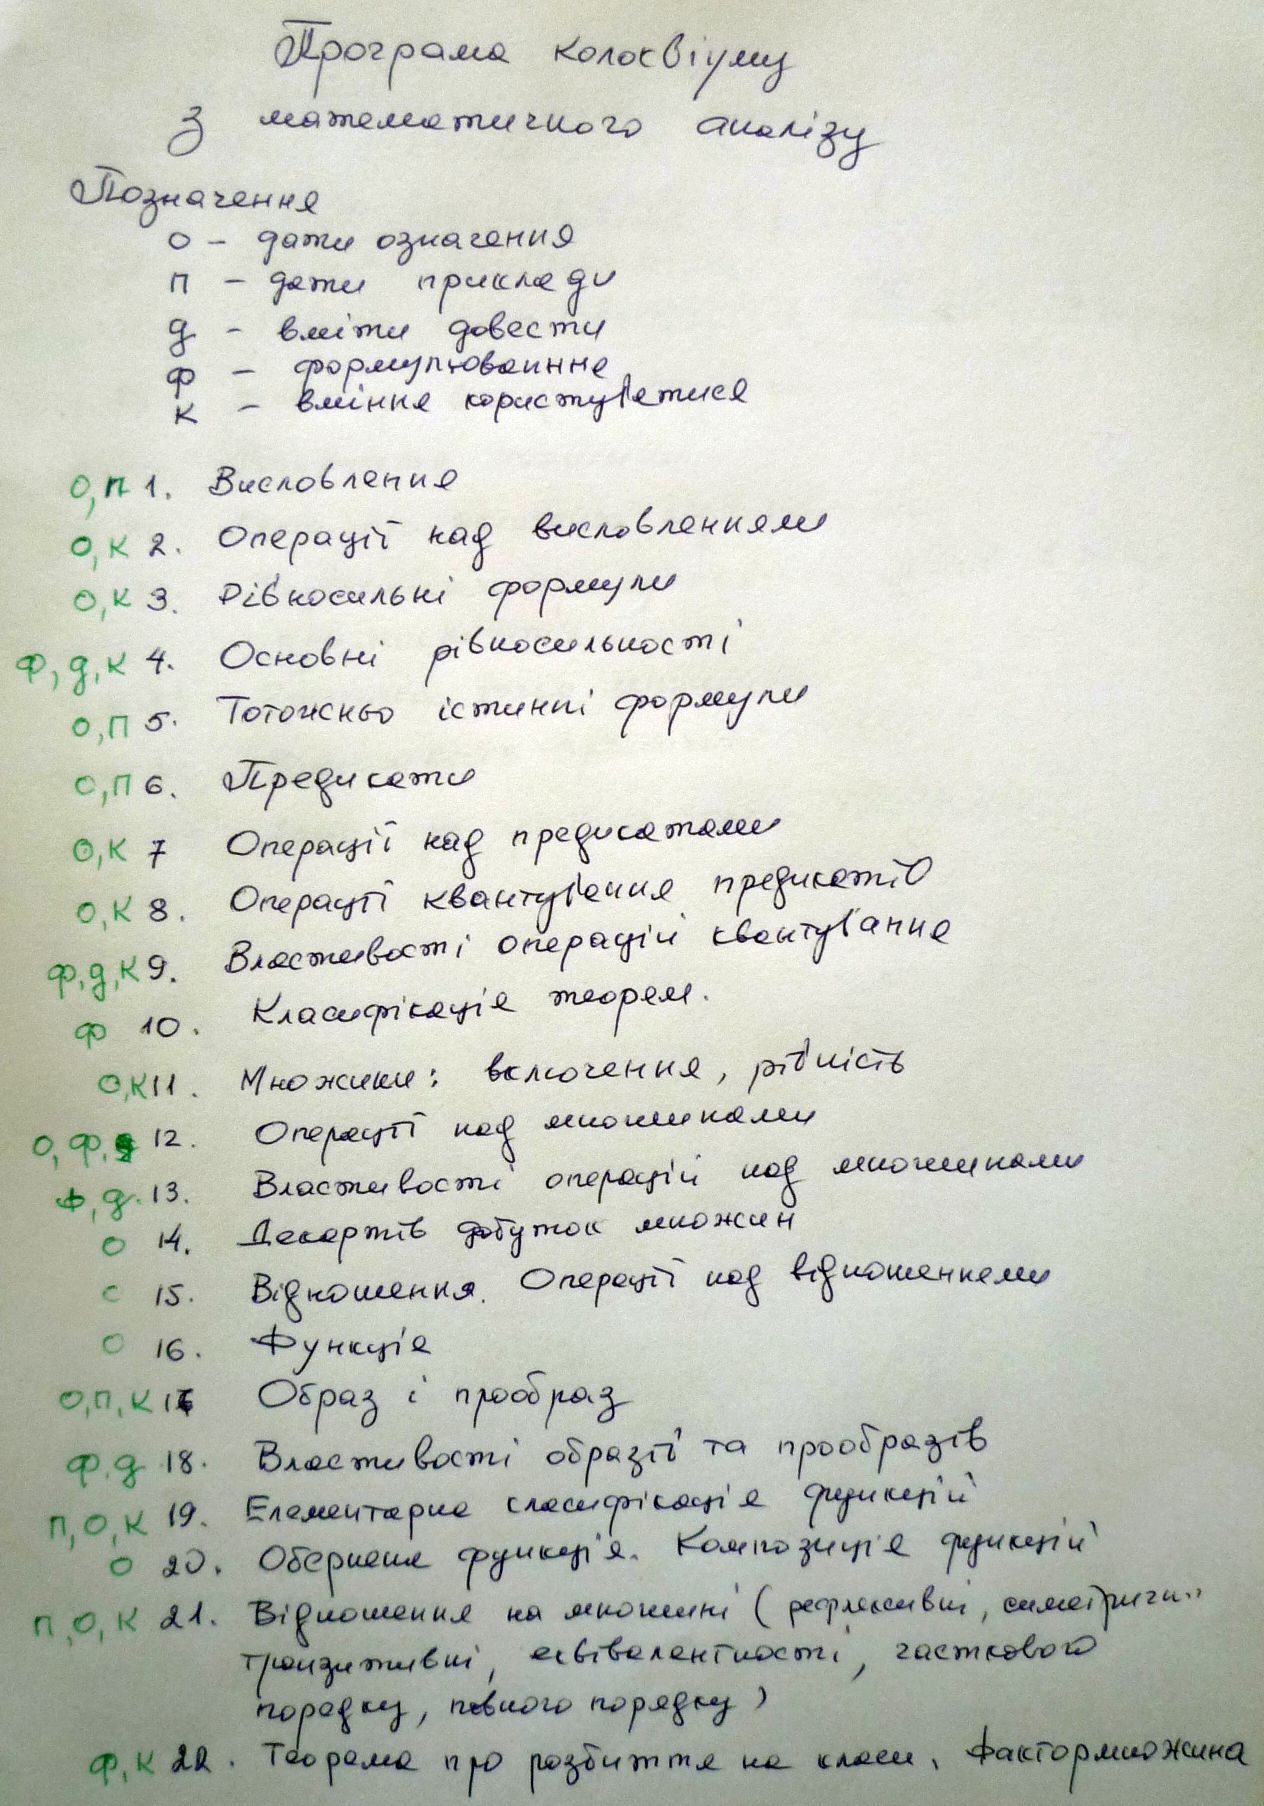 Програма колоквіуму
з математичного аналізу
Позначення
О – дати означення
П – дати приклади
Д – вміти довести
Ф – формулювання
К – вміння користуватися
О,П 1. Висловлення
О,К 2. Операції над висловленнями
О,К 3. Рівносильні формули
Ф,Д,К 4. Основні рівносильності
О,П 5. Тотожньо істинні формули
О,П 6. Предикати
О,К 7 Операції над предикатами
О,К 8. Операції квантування предикатів
Ф,Д,К 9. Властивості операцій квантування
Ф 10. Класифікація теорем.
О,К 11. Множини: включення, рівність
О,Ф,Д 12. Операції над множинами
Ф,Д. 13. Властивості операцій над множинами
О 14. Декартів добуток множин
О 15. Відношення. Операції над відношеннями
О 16. Функція
О,П,К 17 Образ і прообраз
Ф,Д 18. Властивості образів та прообразів
П,О,К 19. Елементарна класифікація функцій
О 20. Обернена функція. Композиція функцій
П,О,К 21. Відношення на множині (рефлексивні, симетричні
транзитивні, еквівалентності, часткового
порядку, повного порядку)
Ф,К 22. Теорема про розбиття на класи. Фактормножина